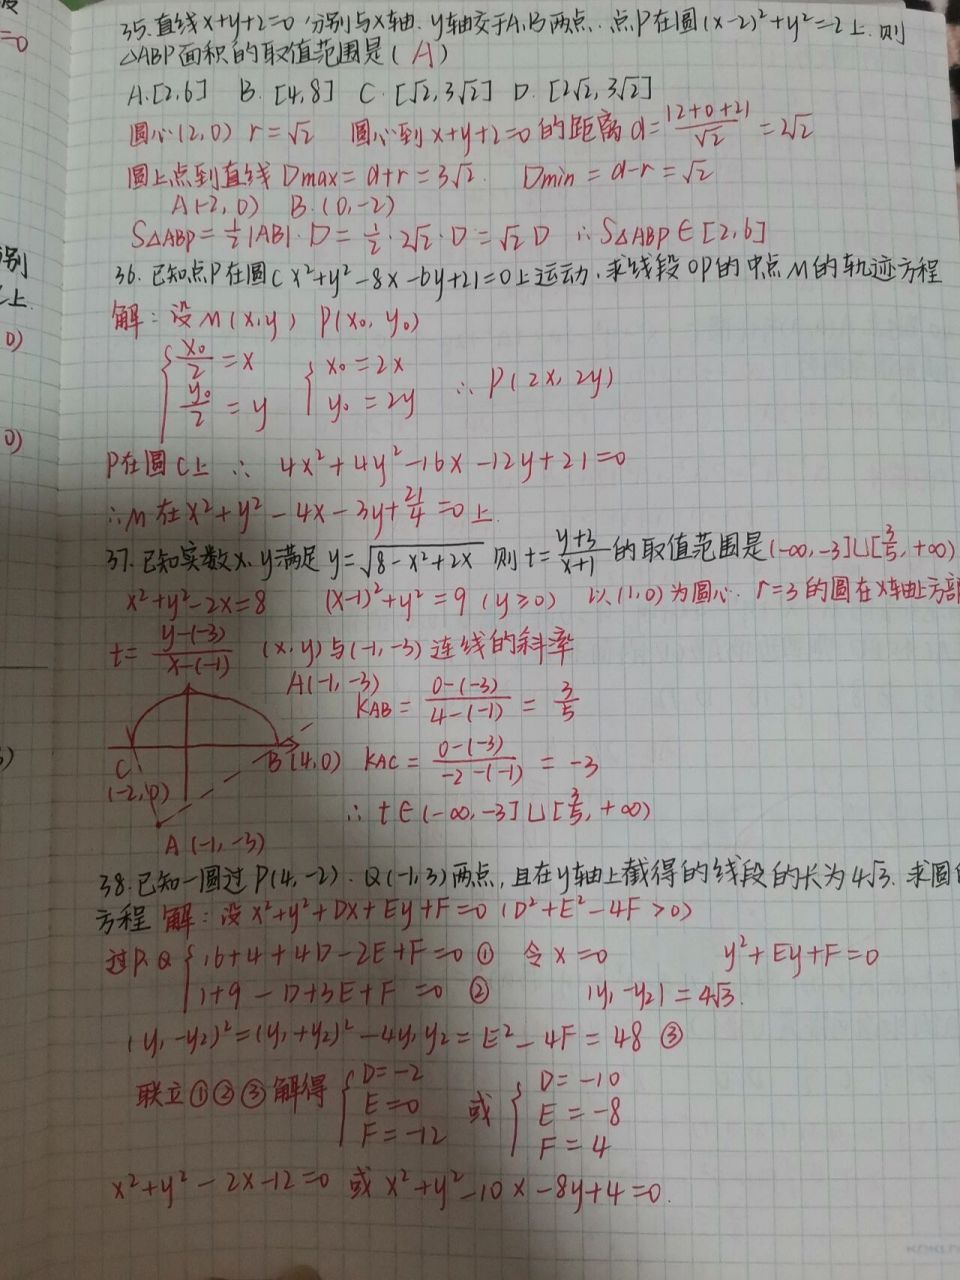 35.直线x+y+2=0 分别与x轴.y轴交于A.B两点.点P在圆(x-2)²+y²=2上.则
△ABP面积的取值范围是(A)
A.[2,6] B.[4,8] C.[√2,3√2] D.[2√2,3√2]
圆心(2,0) r=√2 圆心到x+y+2=0的距离d=|2+0+2|/√2=2√2
圆上点到直线Dmax=d+r=3√2. Dmin=d-r=√2
A(-2,0) B.(0,-2)
S△ABP=½|AB|·D=½·2√2·D=√2D ∴S△ABP∈[2,6]
36.已知点P在圆C x²+y²-8x-6y+21=0上运动.求线段OP的中点M的轨迹方程
解:设M(x,y) P(x₀,y₀)
{x₀/2=x {x₀=2x
y₀/2=y y₀=2y ∴P(2x,2y)
P在圆C上 ∴ 4x²+4y²-16x-12y+21=0
∴M在x²+y²-4x-3y+21/4=0上.
37.已知实数x.y满足y=√(8-x²+2x) 则t=(y+3)/(x+1)的取值范围是(-∞,-3]∪[3/5,+∞)
x²+y²-2x=8 (x-1)²+y²=9(y≥0) 以(1,0)为圆心.r=3的圆在x轴上方部
t=(y-(-3))/(x-(-1)) (x.y)与(-1,-3)连线的斜率
A(-1,-3)
KAB=(0-(-3))/(4-(-1))=3/5
C
(-2,0)
B(4,0) KAC=(0-(-3))/(-2-(-1))=-3
∴t∈(-∞,-3]∪[3/5,+∞)
A(-1,-3)
38.已知一圆过P(4,-2).Q(-1,3)两点,且在y轴上截得的线段的长为4√3.求圆的
方程 解:设x²+y²+Dx+Ey+F=0(D²+E²-4F>0)
过P.Q {16+4+4D-2E+F=0① 令x=0 y²+Ey+F=0
1+9-D+3E+F=0② |y₁-y₂|=4√3.
(y₁-y₂)²=(y₁+y₂)²-4y₁y₂=E²-4F=48③
联立①②③解得{D=-2 E=0 F=-12 或{D=-10 E=-8 F=4
x²+y²-2x-12=0或x²+y²-10x-8y+4=0.